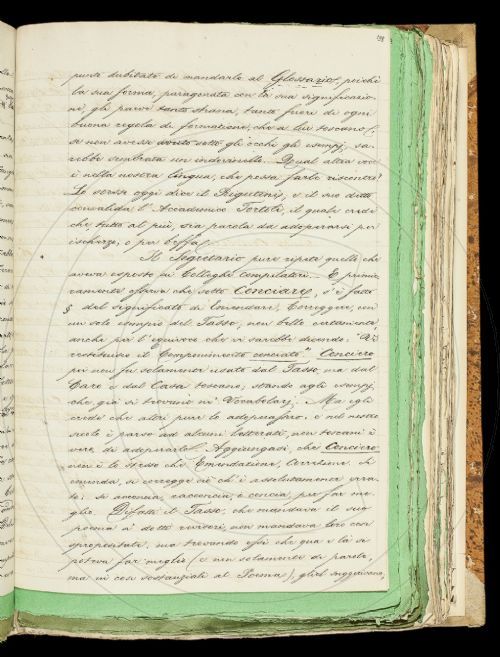 punto dubitato di mandarlo al Glossario, poichè
la sua forma, paragonata con la sua significazio-
ne, gli parve tanto strana, tanto fuori di ogni
buona regola di formazione, che a lui toscano,
se non avesse avuto sotto gli occhi gli esempj, sa-
rebbe sembrata un indovinello. Qual altra voce
è nella nostra lingua, che possa farle riscontro?
Lo stesso oggi dice il Rigutini, e il suo detto
convalida l'Accademico Tortoli, il quale crede
che tutto al più, sia parola da adoperarsi per
ischerzo, o per beffa.
Il Segretario pure ripete quello che
aveva esposto ai Colleghi Compilatori. E primie-
ramente osserva che sotto Conciare, s'è fatto
§ del significato di Emendare, Correggere, con
un solo esempio del Tasso, non bello certamente,
anche per l'equivoco che vi sarebbe dicendo: "Vi
restituisco il Componimento conciato". Conciero
poi non fu solamente usato dal Tasso, ma dal
Caro e dal Casa toscano, stando agli esempj,
che già si trovano ne' Vocabolarj. Ma egli
crede che altri pure lo adoperassero, e nel nostro
secolo è parso ad alcuni letterati, non toscani è
vero, di adoperarlo. Aggiungasi, che Conciero
non è lo stesso che Emendazione, Correzione. Si
emenda, si corregge ciò ch'è assolutamente erra-
to; si acconcia, racconcia, e concia, per far me-
glio. Difatti il Tasso, che mandava il suo
poema a' dotti revisori, non mandava loro cose
spropositate, ma trovando essi che qua e là si
poteva far meglio (e non solamente di parole,
ma in cose sostanziali al Poema), gliel suggerivano,